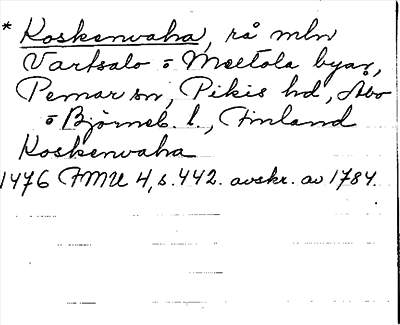 * Koskenvaha, rå mln
Vartsalo o Meltola byar,
Pemar sn, Pikis hd, Åbo
o Björneb. l., Finland
Koskenvaha
1476 FMU 4, s. 442. avskr. av 1784.